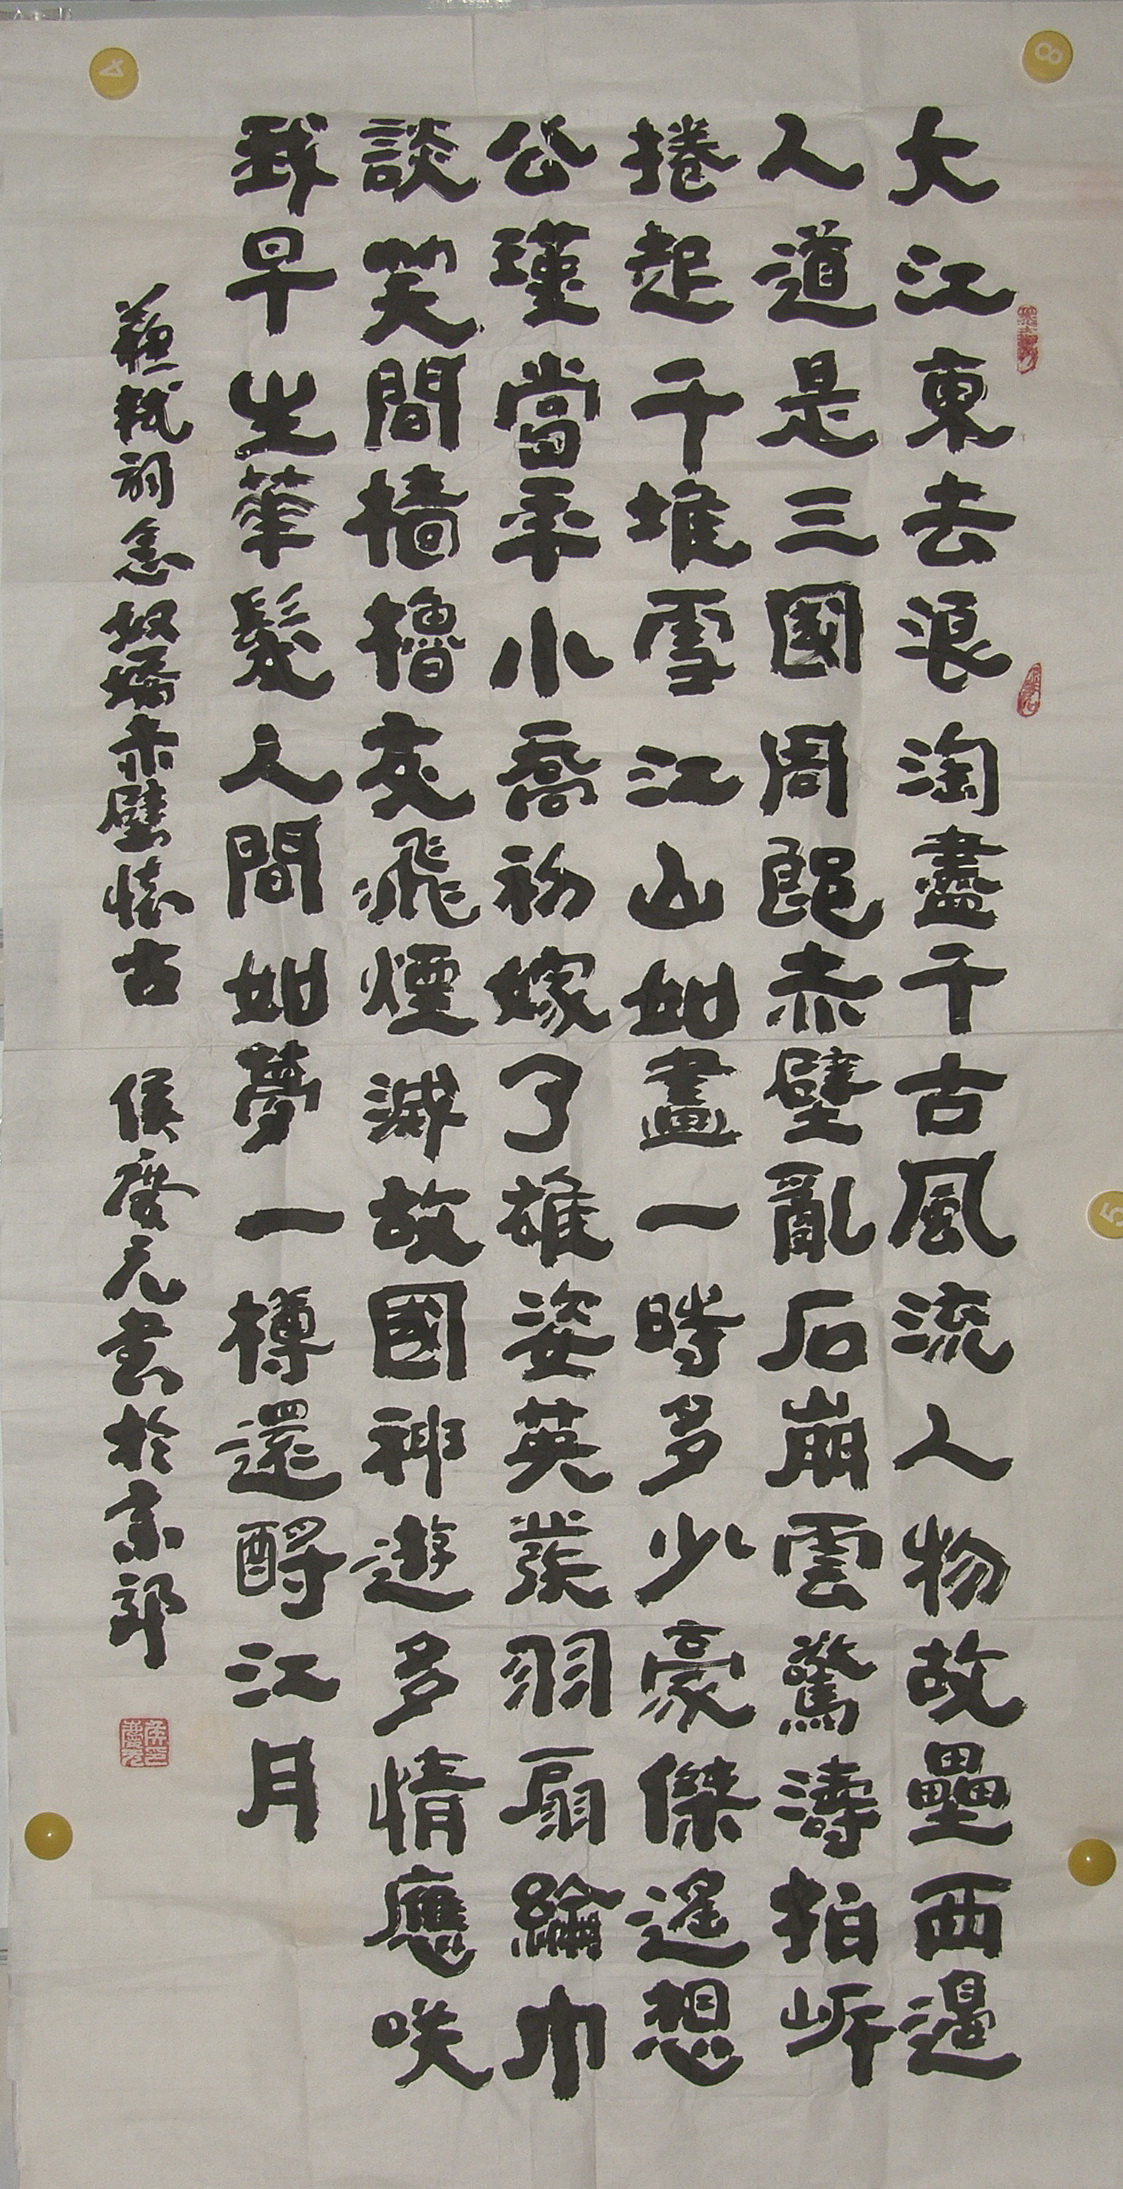 大江東去浪淘盡千古風流人物故壘西邊
人道是三國周郎赤壁亂石崩雲驚濤拍岸
捲起千堆雪江山如畫一時多少豪傑遙想
公瑾當年小喬初嫁了雄姿英發羽扇綸巾
談笑間檣櫓灰飛煙滅故國神遊多情應咲
我早生華髮人間如夢一樽還酹江月
蘇軾詞念奴嬌赤壁懷古 侯慶元書於京郊
4
8
5